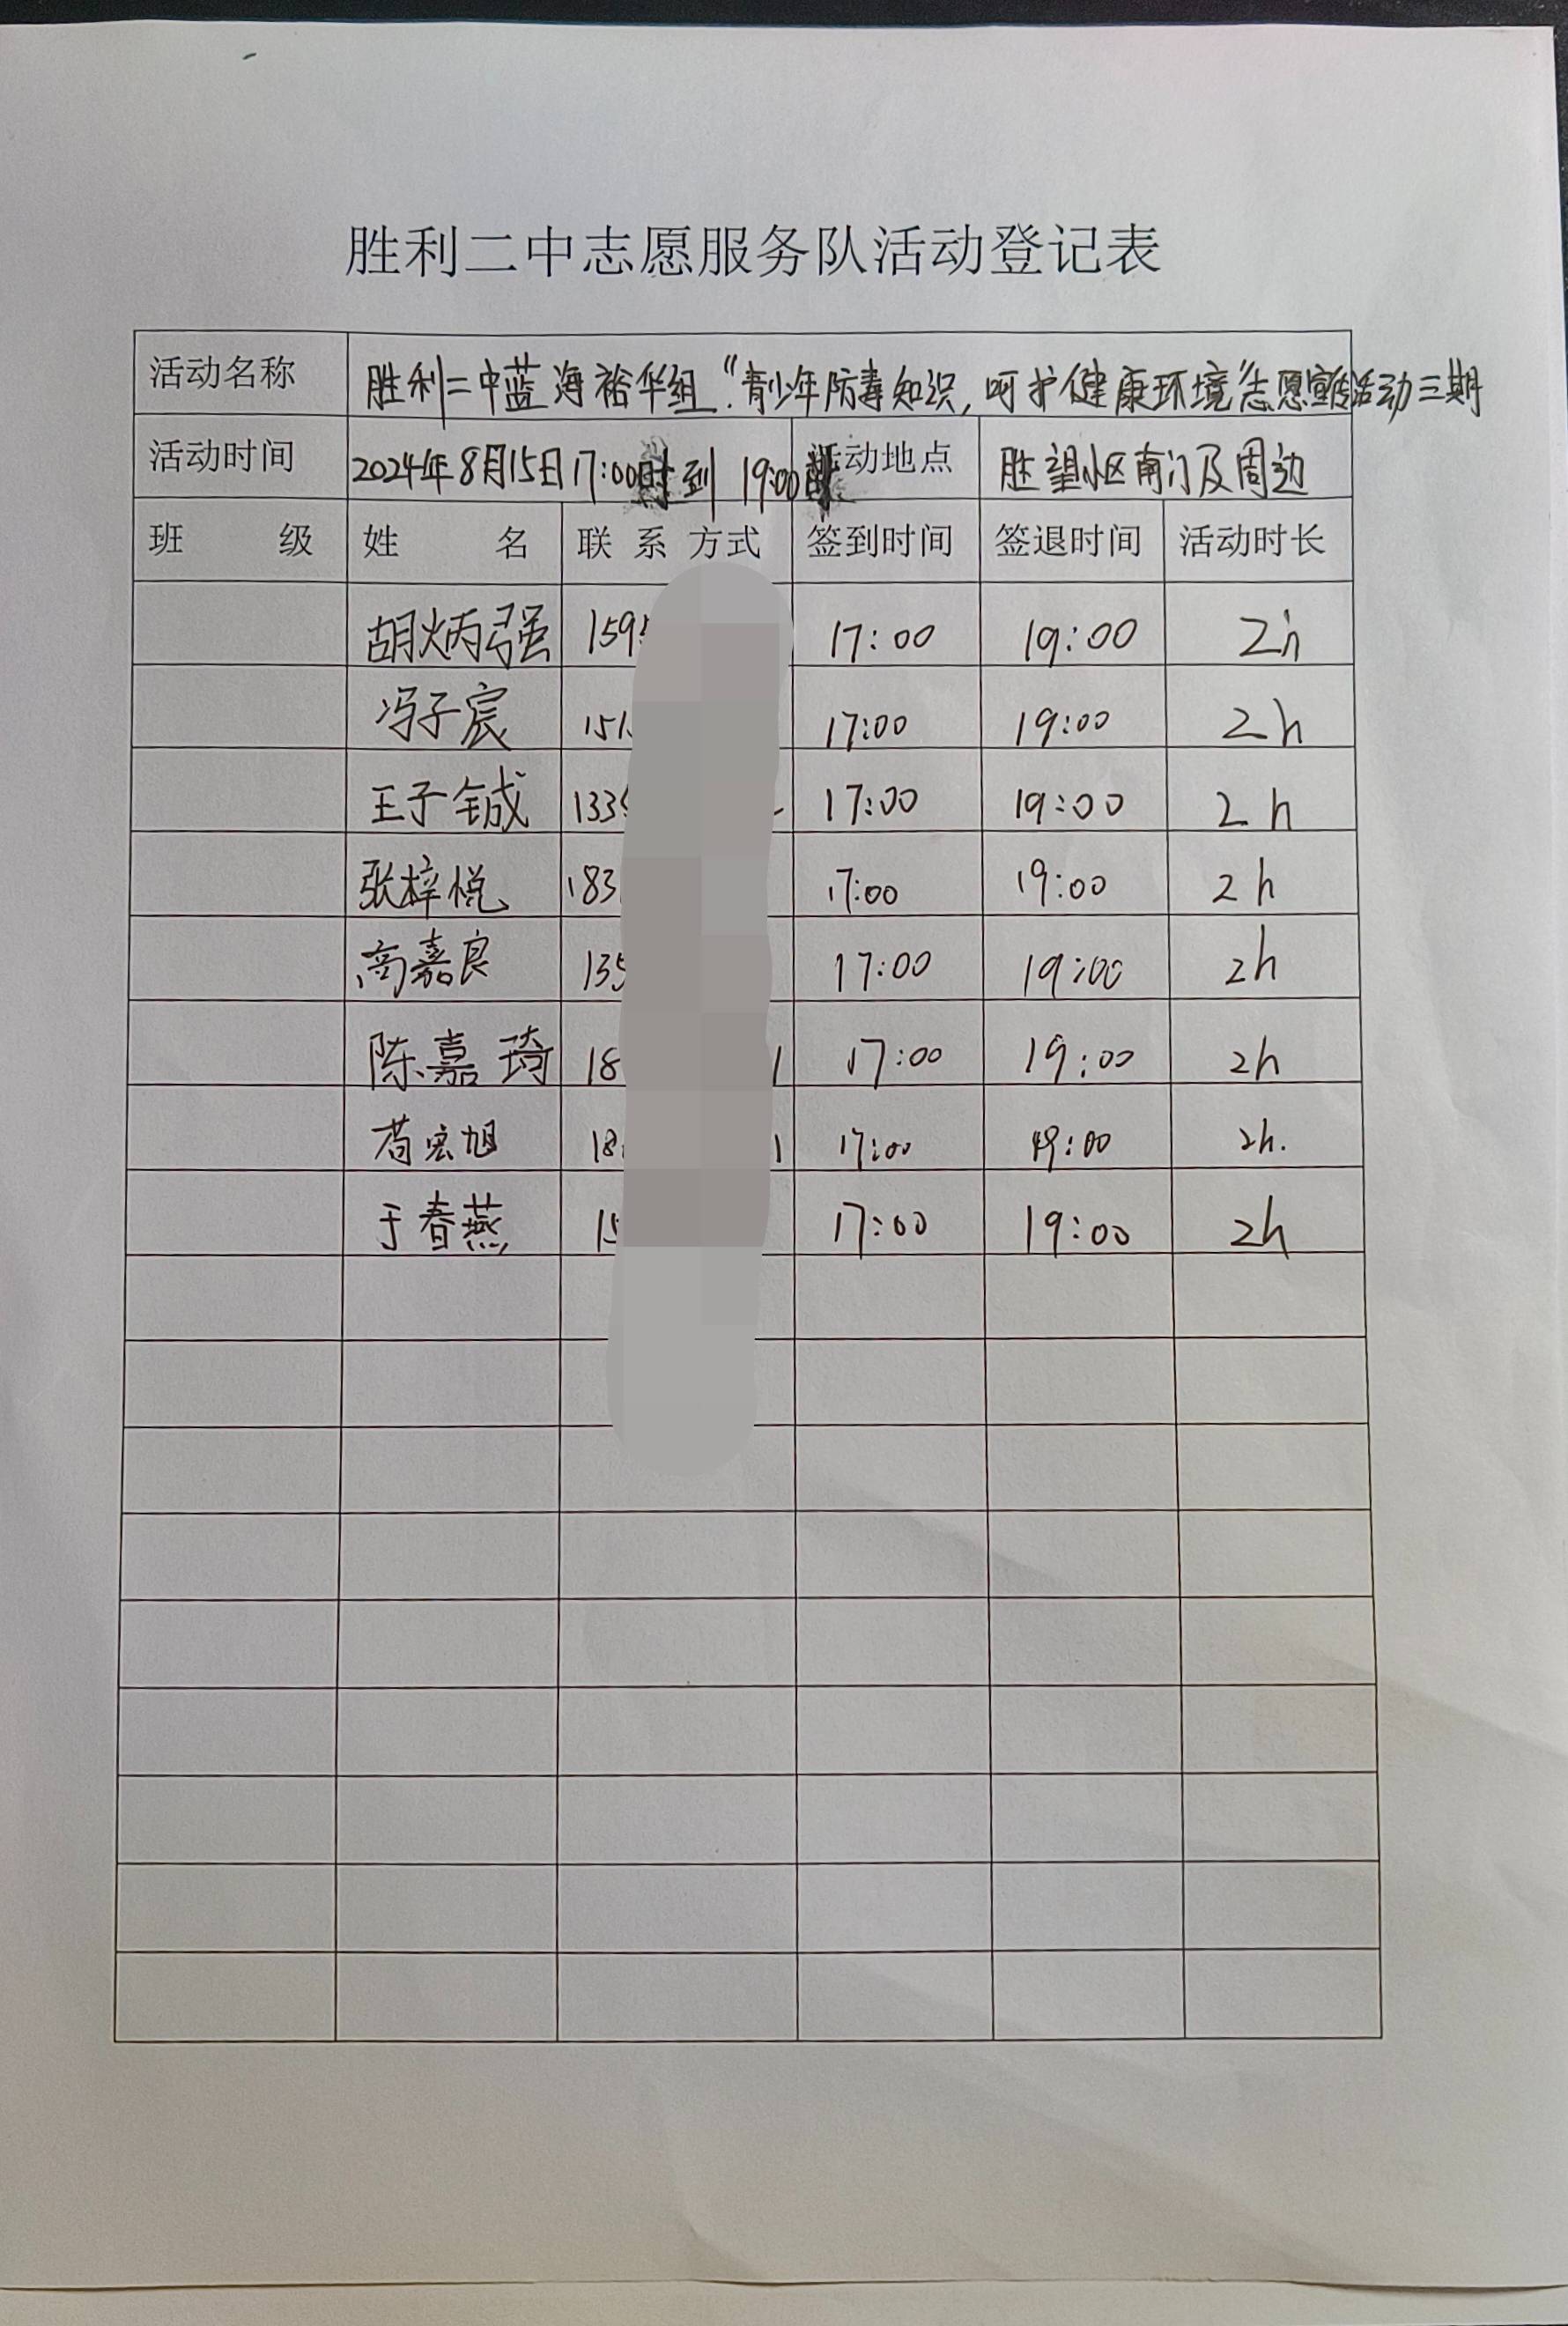 胜利二中志愿服务队活动登记表
活动名称 胜利二中蓝海裕华组“青少年防毒知识,呵护健康环境”志愿宣传活动三期
活动时间 2024年8月15日17:00时到19:00时 活动地点 胜望小区南门及周边
班级 姓名 联系方式 签到时间 签退时间 活动时长
胡炳强 159 17:00 19:00 2h
冯子宸 151 17:00 19:00 2h
王子铖 133 17:00 19:00 2h
张梓悦 183 17:00 19:00 2h
高嘉良 135 17:00 19:00 2h
陈嘉琦 18 1 17:00 19:00 2h
苟宏旭 18 1 17:00 19:00 2h.
于春燕 15 17:00 19:00 2h